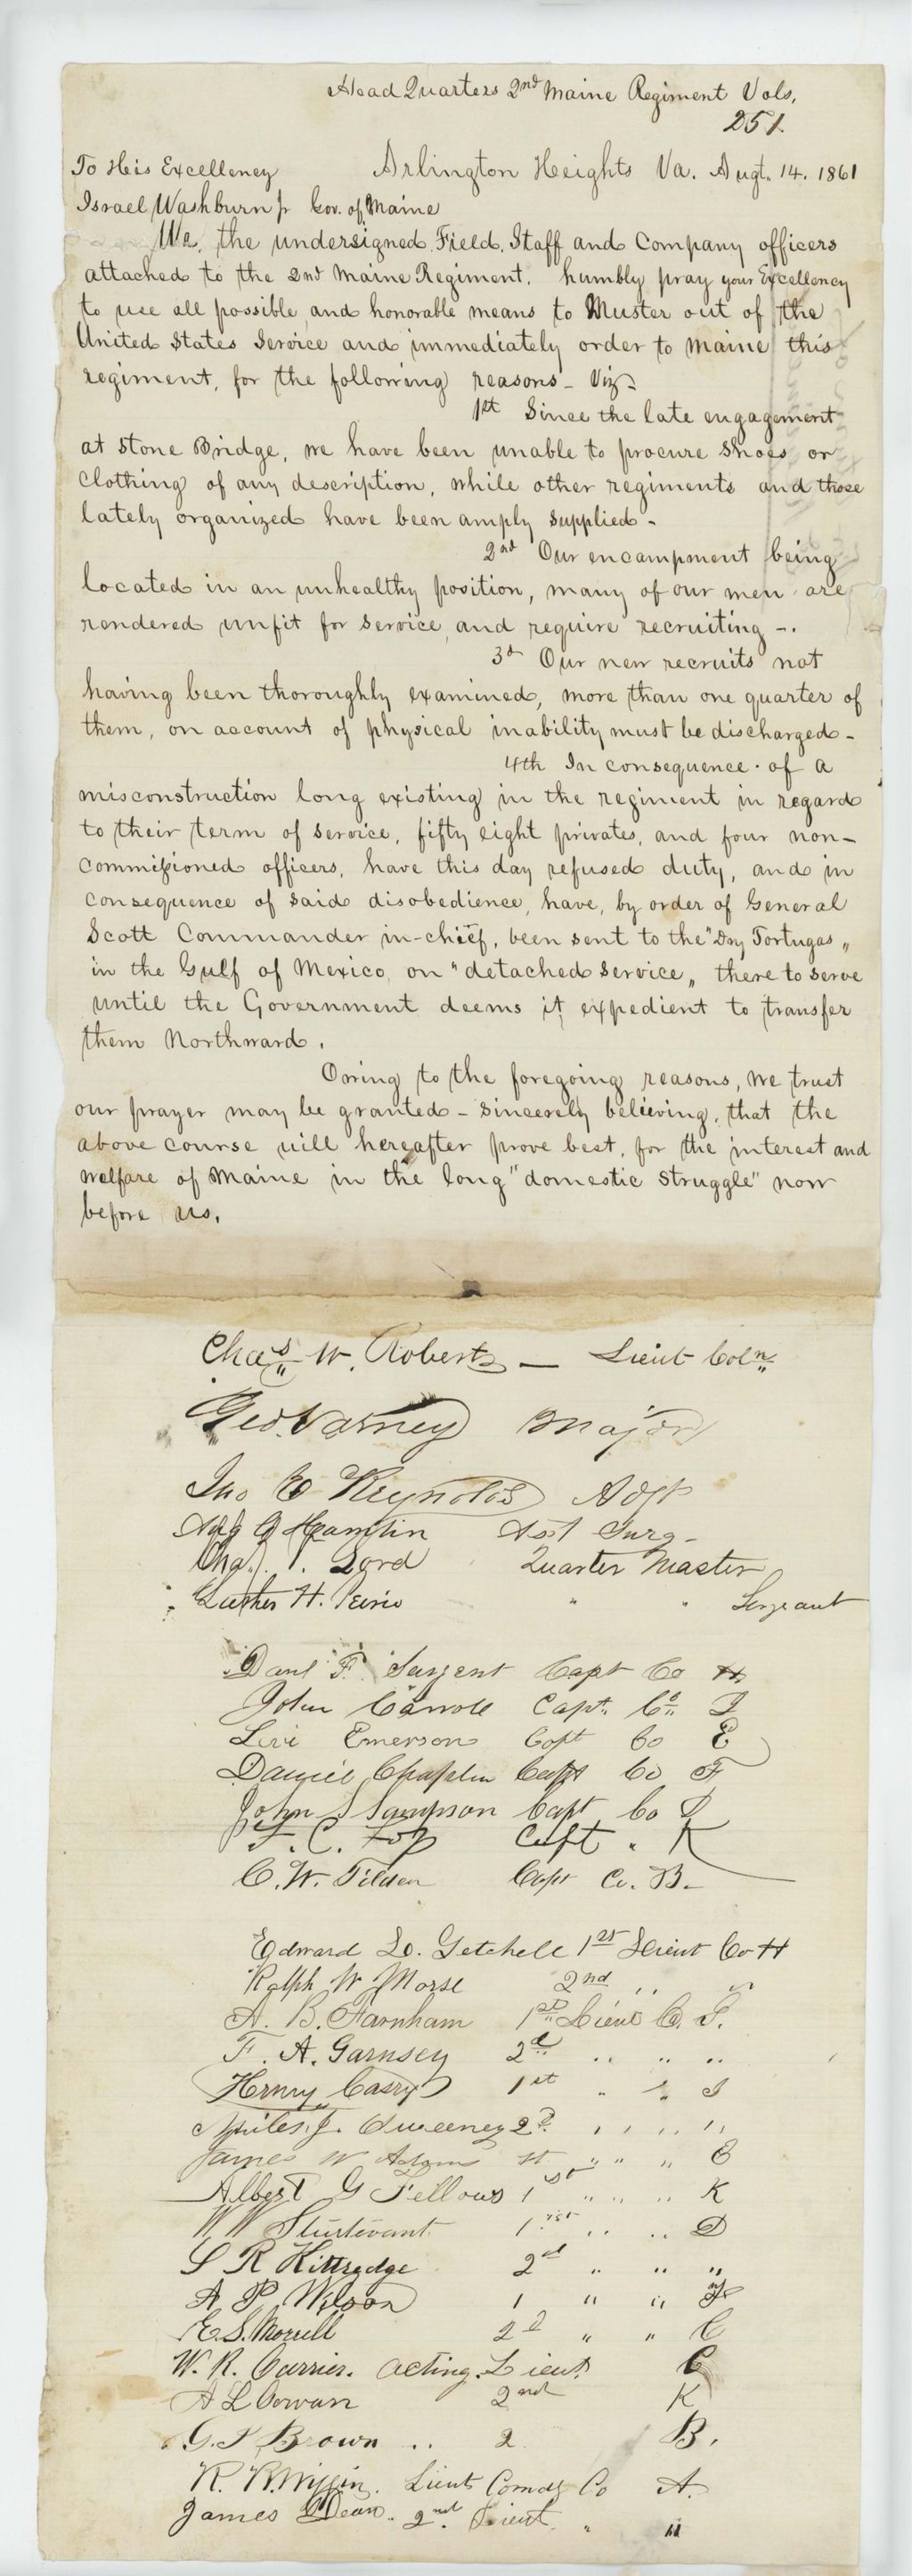 Head Quarters 2nd Maine Regiment Vols.
251.
To His Excellency Arlington Heights Va. Augt. 14. 1861
Israel Washburn Jr Gov. of Maine
We, the undersigned Field, Staff and Company officers
attached to the 2nd Maine Regiment, humbly pray your Excellency
to use all possible and honorable means to Muster out of the
United States Service and immediately order to Maine this
regiment, for the following reasons - Viz -
1st Since the late engagement
at Stone Bridge, we have been unable to procure shoes or
Clothing of any description, while other regiments and those
lately organized have been amply supplied -
2nd Our encampment being
located in an unhealthy position, many of our men are
rendered unfit for service, and require recruiting -.
3d Our new recruits not
having been thoroughly examined, more than one quarter of
them, on account of physical inability must be discharged -
4th In consequence of a
misconstruction long existing in the regiment in regard
to their term of service, fifty eight privates, and four non-
commissioned officers, have this day refused duty, and in
consequence of said disobedience, have, by order of General
Scott Commander in-chief, been sent to the "Dry Tortugas"
in the Gulf of Mexico, on "detached service" there to serve
until the Government deems it expedient to transfer
them Northward.
Owing to the foregoing reasons, we trust
our prayer may be granted - sincerely believing, that the
above course will hereafter prove best, for the interest and
welfare of Maine in the long "domestic struggle" now
before us.
Chas W. Roberts - Lieut Coln
Geo. Varney Major
Jno E Reynolds Adjt
Aug C Hamlin Asst Surg -
Chas. V. Lord Quarter Master
Luther H. Peirce " " Sergeant
Danl F. Sargent Capt Co H.
John Carroll Capt. Co. I
Levi Emerson Capt Co E
Daniel Chaplin Capt Co F
John S Sampson Capt Co D
F. C. Foss Capt " K
C. W. Tilden Capt Co. B.
Edward L. Getchell 1st Lieut Co H
Ralph W Morse 2nd " "
A. B. Farnham 1st Lieut Co.
F. A. Garnsey 2d " " "
Henry Casey 1st " " I
Miles J. Sweeney 2d " " "
James W Adams " " E
Albert G Fellows 1st " " " K
W W Sturtevant 1st " " D
S R Kittredge 2nd " " "
A P Wilson 1 " "
E. S. Morrill 2d " " C
W. R. Currier. acting Lieut C
A L Cowan 2nd K
G. Brown .. 2 B.
R. R. Wiggin. Lieut Comdg Co A.
James Dean. 2nd Lieut " "